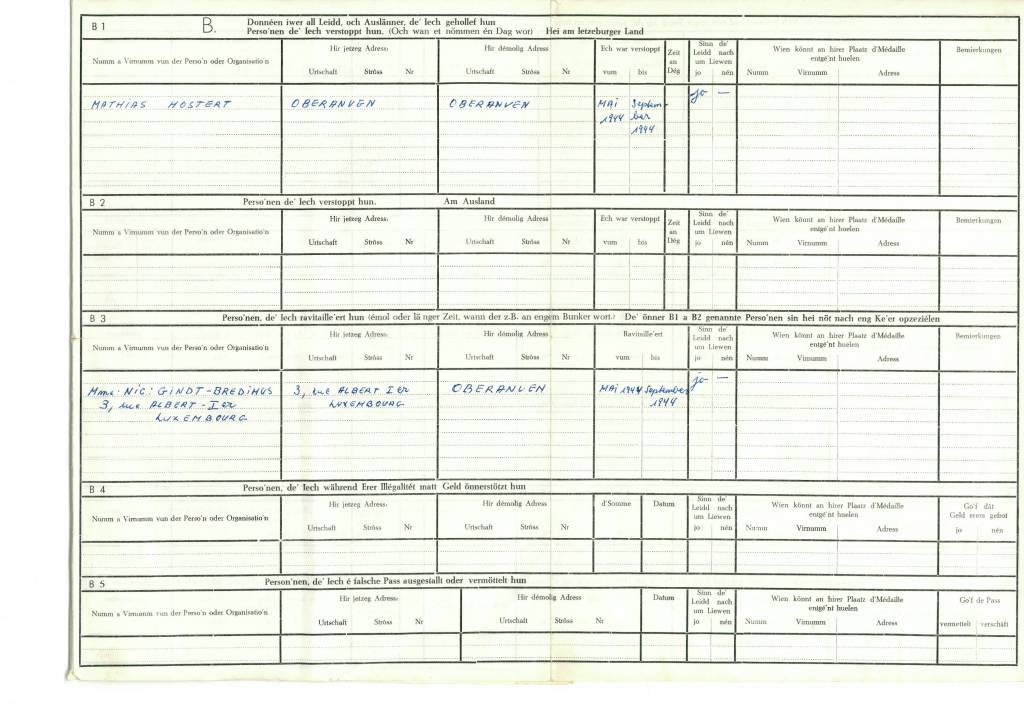 B 1
B.
Donnéen iwer all Leidd, och Auslänner, de' Iech gehollef hun
Perso'nen de' Iech verstoppt hun. (Och wan et nömmen én Dag wor) Hei am letzeburger Land
Numm a Virnumm vun der Perso'n oder Organisatio'n
Hir jetzeg Adress:
Urtschaft Ströss Nr
Hir démolig Adress
Urtschaft Ströss Nr
Ech war verstoppt
vum bis
Zeit an Dég
Sinn de' Leidd nach um Liewen
jo nén
Wien könnt an hirer Plaatz d'Médaille entgé'nt huelen
Numm Virnumm Adress
Bemierkungen
MATHIAS HOSTERT
OBERANVEN
OBERANVEN
MAI 1944
September 1944
jo —
B 2
Perso'nen de' Iech verstoppt hun. Am Ausland
Numm a Virnumm vun der Perso'n oder Organisatio'n
Hir jetzeg Adress:
Urtschaft Ströss Nr
Hir démolig Adress
Urtschaft Ströss Nr
Ech war verstoppt
vum bis
Zeit an Dég
Sinn de' Leidd nach um Liewen
jo nén
Wien könnt an hirer Plaatz d'Médaille entgé'nt huelen
Numm Virnumm Adress
Bemierkungen
B 3
Perso'nen, de' Iech ravitaille'ert hun (émol oder lä nger Zeit, wann der z.B. an engem Bunker wort.) De' önner B1 a B2 genannte Perso'nen sin hei nöt nach eng Ke'er opzeziélen
Numm a Virnumm vun der Perso'n oder Organisatio'n
Hir jetzeg Adress:
Urtschaft Ströss Nr
Hir démolig Adress:
Urtschaft Ströss Nr
Ravitaille'ert
vum bis
Sinn de' Leidd nach um Liewen
jo nén
Wien könnt an hirer Plaatz d'Médaille entgé'nt huelen
Numm Virnumm Adress
Bemierkungen
Mme: NIC: GINDT-BREDIMUS
3, rue ALBERT-Ier
LUXEMBOURG
3, rue ALBERT Ier
LUXEMBOURG
OBERANVEN
MAI 1944
September 1944
jo —
B 4
Perso'nen, de' Iech während Erer Illégalitét matt Geld önnerstötzt hun
Numm a Virnumm vun der Perso'n oder Organisatio'n
Hir jetzeg Adress:
Urtschaft Ströss Nr
Hir démolig Adress:
Urtschaft Ströss Nr
d'Somme
Datum
Sinn de' Leidd nach um Liewen
jo nén
Wien könnt an hirer Plaatz d'Médaille entgé'nt huelen
Numm Virnumm Adress
Go'f dât Geld erem gefrot
jo nén
B 5
Person'nen, de' Iech é falsche Pass ausgestallt oder vermöttelt hun
Numm a Virnumm vun der Perso'n oder Organisatio'n
Hir jetzeg Adress:
Urtschaft Ströss Nr
Hir démolig Adress
Urtschaft Ströss Nr
Datum
Sinn de' Leidd nach um Liewen
jo nén
Wien könnt an hirer Plaatz d'Médaille entgé'nt huelen
Numm Virnumm Adress
Go'f de Pass
vermettelt verschäft